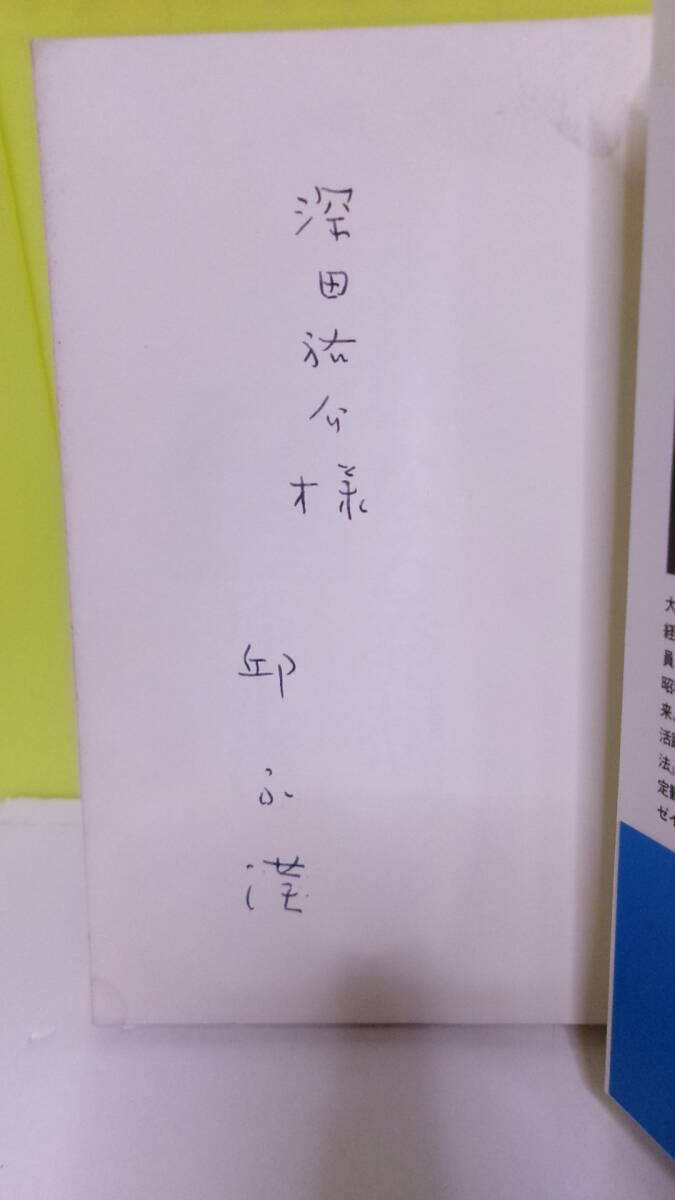 深田祐介様
邱永漢
大
経
員
昭
来、
活
法』
定
ゼイ